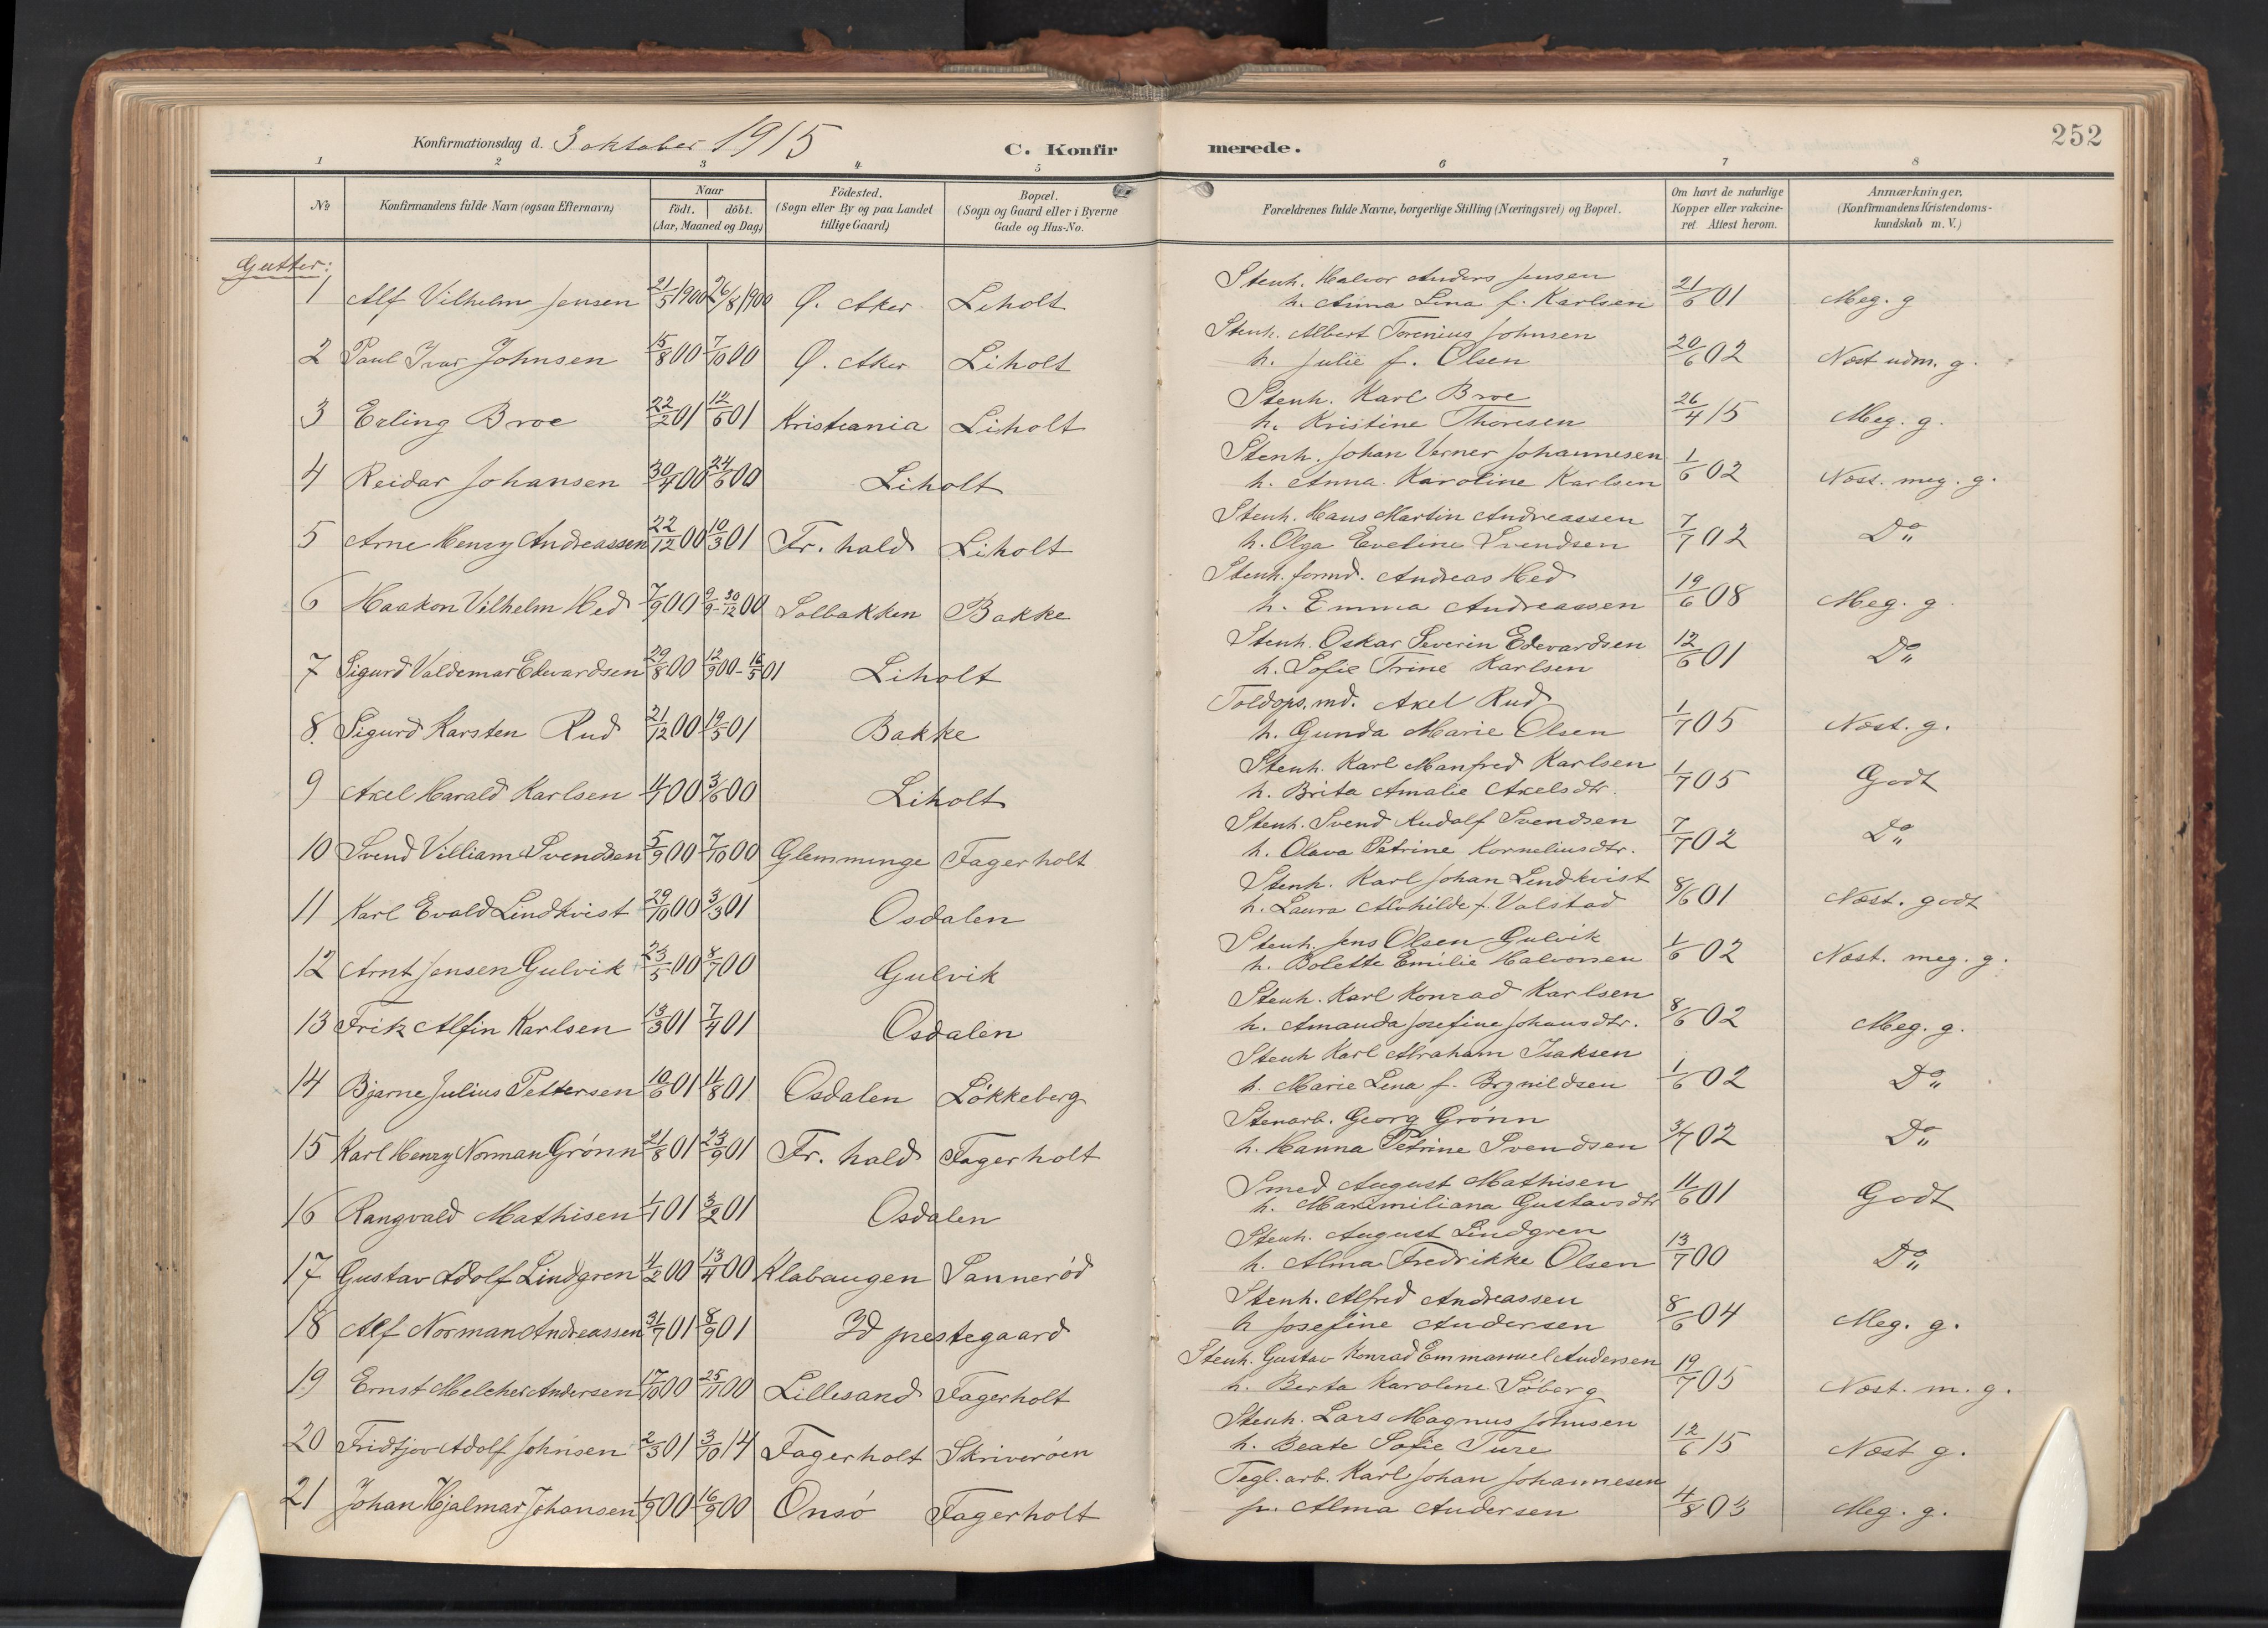 252
Konfirmationsdag d. 3 oktober 1915
C. Konfirmerede.
1 2 3 4 5 6 7 8
No
Konfirmandens fulde Navn (ogsaa Efternavn)
Naar
födt. döbt.
(Aar, Maaned og Dag)
Födested.
(Sogn eller By og paa Landet
tillige Gaard)
Bopæl.
(Sogn og Gaard eller i Byerne
Gade og Hus-No.
Forældrenes fulde Navne, borgerlige Stilling (Næringsvei) og Bopæl.
Om havt de naturlige
Kopper eller vakcine-
ret. Attest herom.
Anmærkninger.
(Konfirmandens Kristendoms-
kundskab m. V.)
Gutter:
Stenh. Halvor Anders Jensen
1 Alf Vilhelm Jensen 21/5 1900 26/8 1900 Ø. Aker Liholt h. Anna Lina f. Karlsen 21/6 01 Meg. g
Stenh. Albert Torenius Johnsen
2 Paul Ivar Johnsen 15/8 00 7/10 00 Ø. Aker Liholt h. Julie f. Olsen 20/6 02 Næst udm. g.
Stenh. Karl Broe
3 Erling Broe 22/2 01 12/6 01 Kristiania Liholt h. Kristine Thoresen 26/4 15 Meg. g.
Stenh. Johan Verner Johannesen
4 Reidar Johansen 30/4 00 24/6 00 Liholt h. Anna Karoline Karlsen 1/6 02 Næst. meg. g.
Stenh. Hans Martin Andreassen
5 Arne Henry Andreassen 22/12 00 10/3 01 Fr. hald Liholt h. Olga Eveline Svendsen 7/7 02 Do
Stenh. formd. Andreas Hed
6 Haakon Vilhelm Hed 7/9 00 9/9 - 30/12 00 Solbakken Bakke h. Emma Andreassen 19/6 08 Meg. g.
Stenh. Oskar Severin Edevardsen
7 Sigurd Valdemar Edevardsen 29/8 00 12/9 00 - 16/5 01 Liholt h. Sofie Trine Karlsen 12/6 01 Do
Toldops. md. Axel Rud
8. Sigurd Karsten Rud 21/12 00 19/5 01 Bakke h. Gunda Marie Olsen 1/7 05 Næst. g.
Stenh. Karl Manfred Karlsen
9 Axel Harald Karlsen 4/4 00 3/6 00 Liholt h. Brita Amalie Axelsdtr. 1/7 05 Godt
Stenh. Svend Rudolf Svendsen
10 Svend Villiam Svendsen 5/9 00 7/10 00 Glemminge Fagerholt h. Olava Petrine Korneliusdtr. 7/7 02 Do
Stenh. Karl Johan Lindkvist
11 Karl Evald Lindkvist 29/10 00 3/3 01 Osdalen h. Laura Alvhilde f. Valstad 8/6 01 Næst. godt
Stenh. Jens Olsen Gulvik
12 Arnt Jensen Gulvik 23/5 00 8/7 00 Gulvik h. Bolette Emilie Halvorsen 1/6 02 Næst. meg. g.
Stenh. Karl Konrad Karlsen
13 Frik Alfin Karlsen 13/3 01 7/4 01 Osdalen h. Amanda Josefine Johansdtr. 8/6 02 Meg. g.
Stenh Karl Abraham Isaksen
14 Bjarne Julius Pettersen 10/6 01 11/8 01 Osdalen Lökkeberg h. Marie Lina f. Brynildsen 1/6 02 Do
Stenarb. Georg Grönn
15 Karl Henry Norman Grönn 21/8 01 23/9 01 Fr. hald Fagerholt h. Hanna Petrine Svendsen 3/7 02 Do
Smed August Mathisen
16 Rangvald Mathisen 1/1 01 3/2 01 Osdalen h. Maximiliana Gustavsdtr 11/6 01 Godt
Stenh. August Lindgren
17 Gustav Adolf Lindgren 4/2 00 13/4 00 Klabaugen Sannerød h. Alma Fredrikke Olsen 13/7 00 Do
Stenh. Alfred Andreassen
18 Alf Norman Andreassen 31/7 01 8/9 01 Id prestegaard h Josefine Andersen 8/6 04 Meg. g.
Stenh. Gustav Konrad Emmanuel Andersen
19 Ernst Melcher Andersen 17/10 00 25/11 00 Lillesand Fagerholt h. Berta Karolene Söberg 19/7 05 Næst. m. g.
Stenh. Lars Magnus Johnsen
20 Fridtjov Adolf Johnsen 2/3 01 3/10 14 Fagerholt Skriveröen h. Beate Sofie Ture 12/6 15 Næst g.
Tegl. arb. Karl Johan Johannesen
21 Johan Hjalmar Johansen 1/9 00 16/9 00 Onsö Fagerholt h. Alma Andersen 4/8 03 Meg. g.